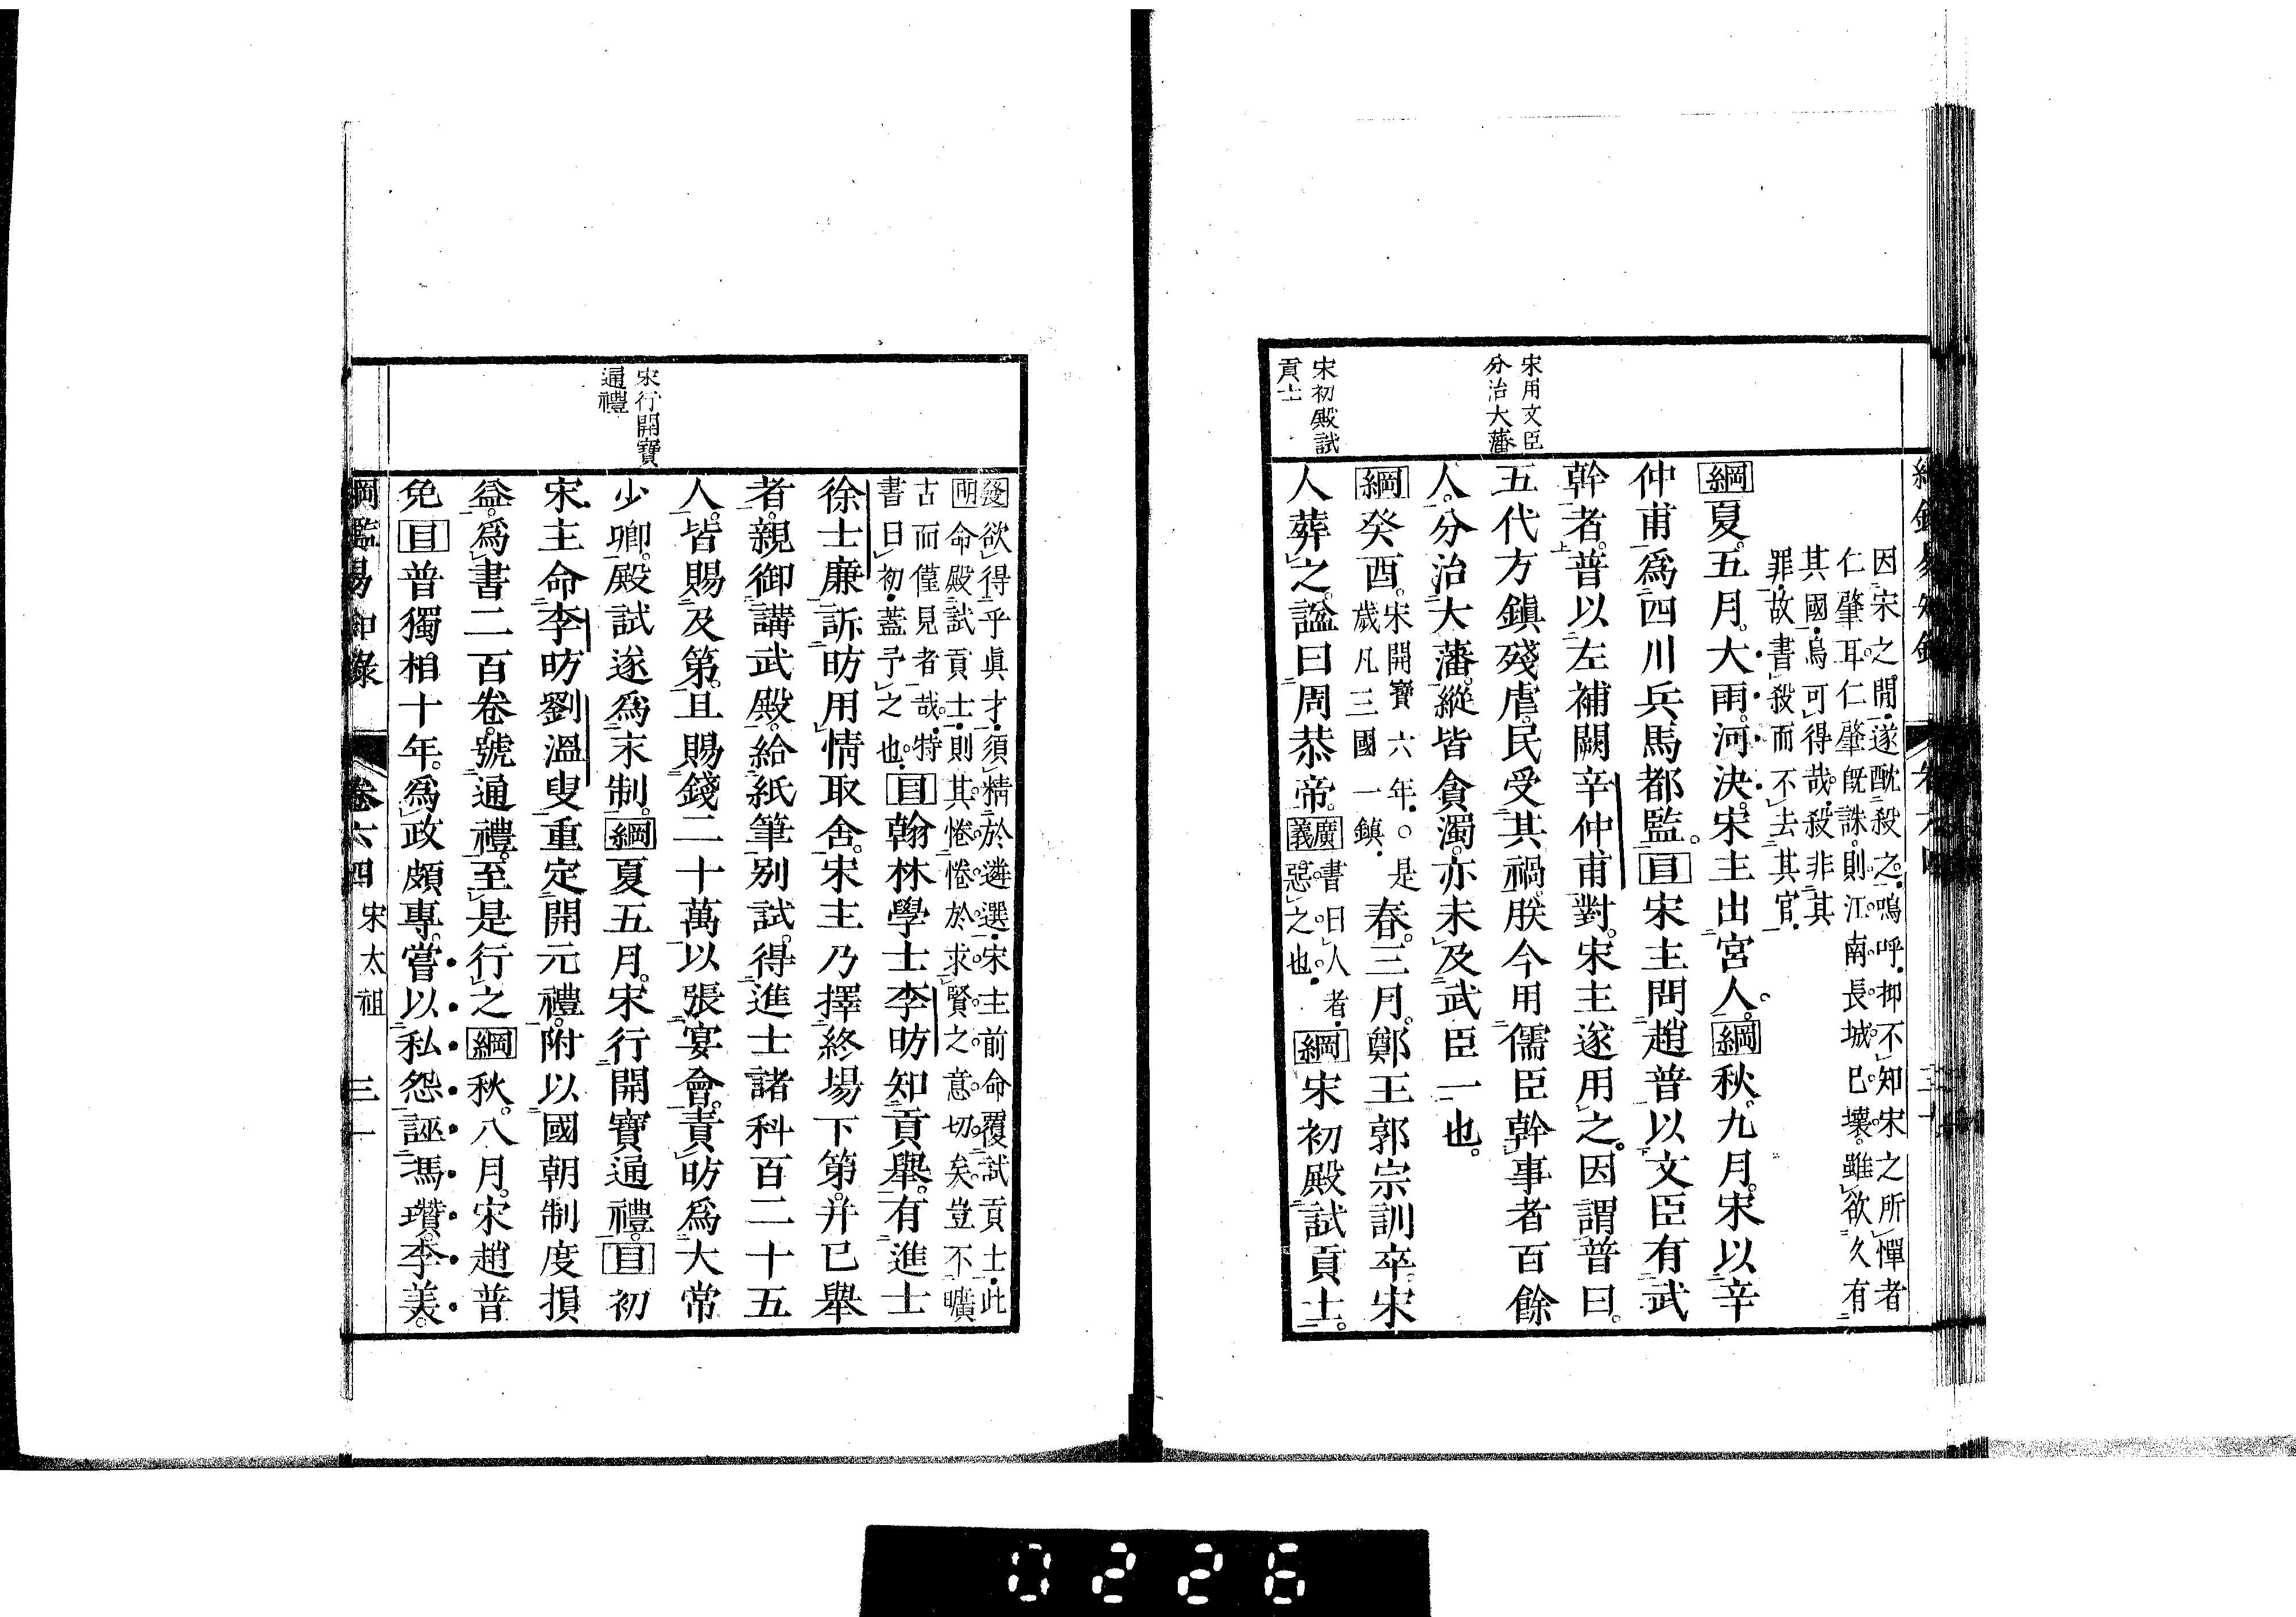 因宋之間遂酖殺之嗚呼抑不知宋之所憚者
仁肇耳仁肇既誅則江南長城已壞雖欲久有
其國烏可得哉殺非其
罪故書殺而不去其官
綱夏五月大雨河決宋主出宮人綱秋九月宋以辛
仲甫爲四川兵馬都監目宋主問趙普以文臣有武
幹者普以左補闕辛仲甫對宋主遂用之因謂普曰
五代方鎭殘虐民受其禍朕今用儒臣幹事者百餘
人分治大藩縱皆貪濁亦未及武臣一也
宋用文臣
分治大藩
綱癸酉
宋開寶六年○是
歲凡三國一鎭
春三月鄭王郭宗訓卒宋
人葬之諡曰周恭帝
廣書曰人者
義惡之也
綱宋初殿試貢士
宋初殿試
貢士
發欲得乎眞才須精於遴選宋主前命覆試貢士此
明命殿試貢士則其惓惓於求賢之意切矣豈不曠
古而僅見者哉特
書曰初蓋予之也
目翰林學士李昉知貢舉有進士
徐士廉訴昉用情取舍宋主乃擇終場下第并已舉
者親御講武殿給紙筆別試得進士諸科百二十五
人皆賜及第且賜錢二十萬以張宴會責昉爲大常
少卿殿試遂爲末制綱夏五月宋行開寶通禮目初
宋行開寶
通禮
宋主命李昉劉溫叟重定開元禮附以國朝制度損
益爲書二百卷號通禮至是行之綱秋八月宋趙普
免目普獨相十年爲政頗專嘗以私怨誣馮瓚李美
綱鑑易知錄 卷六四 宋太祖 三一
0226